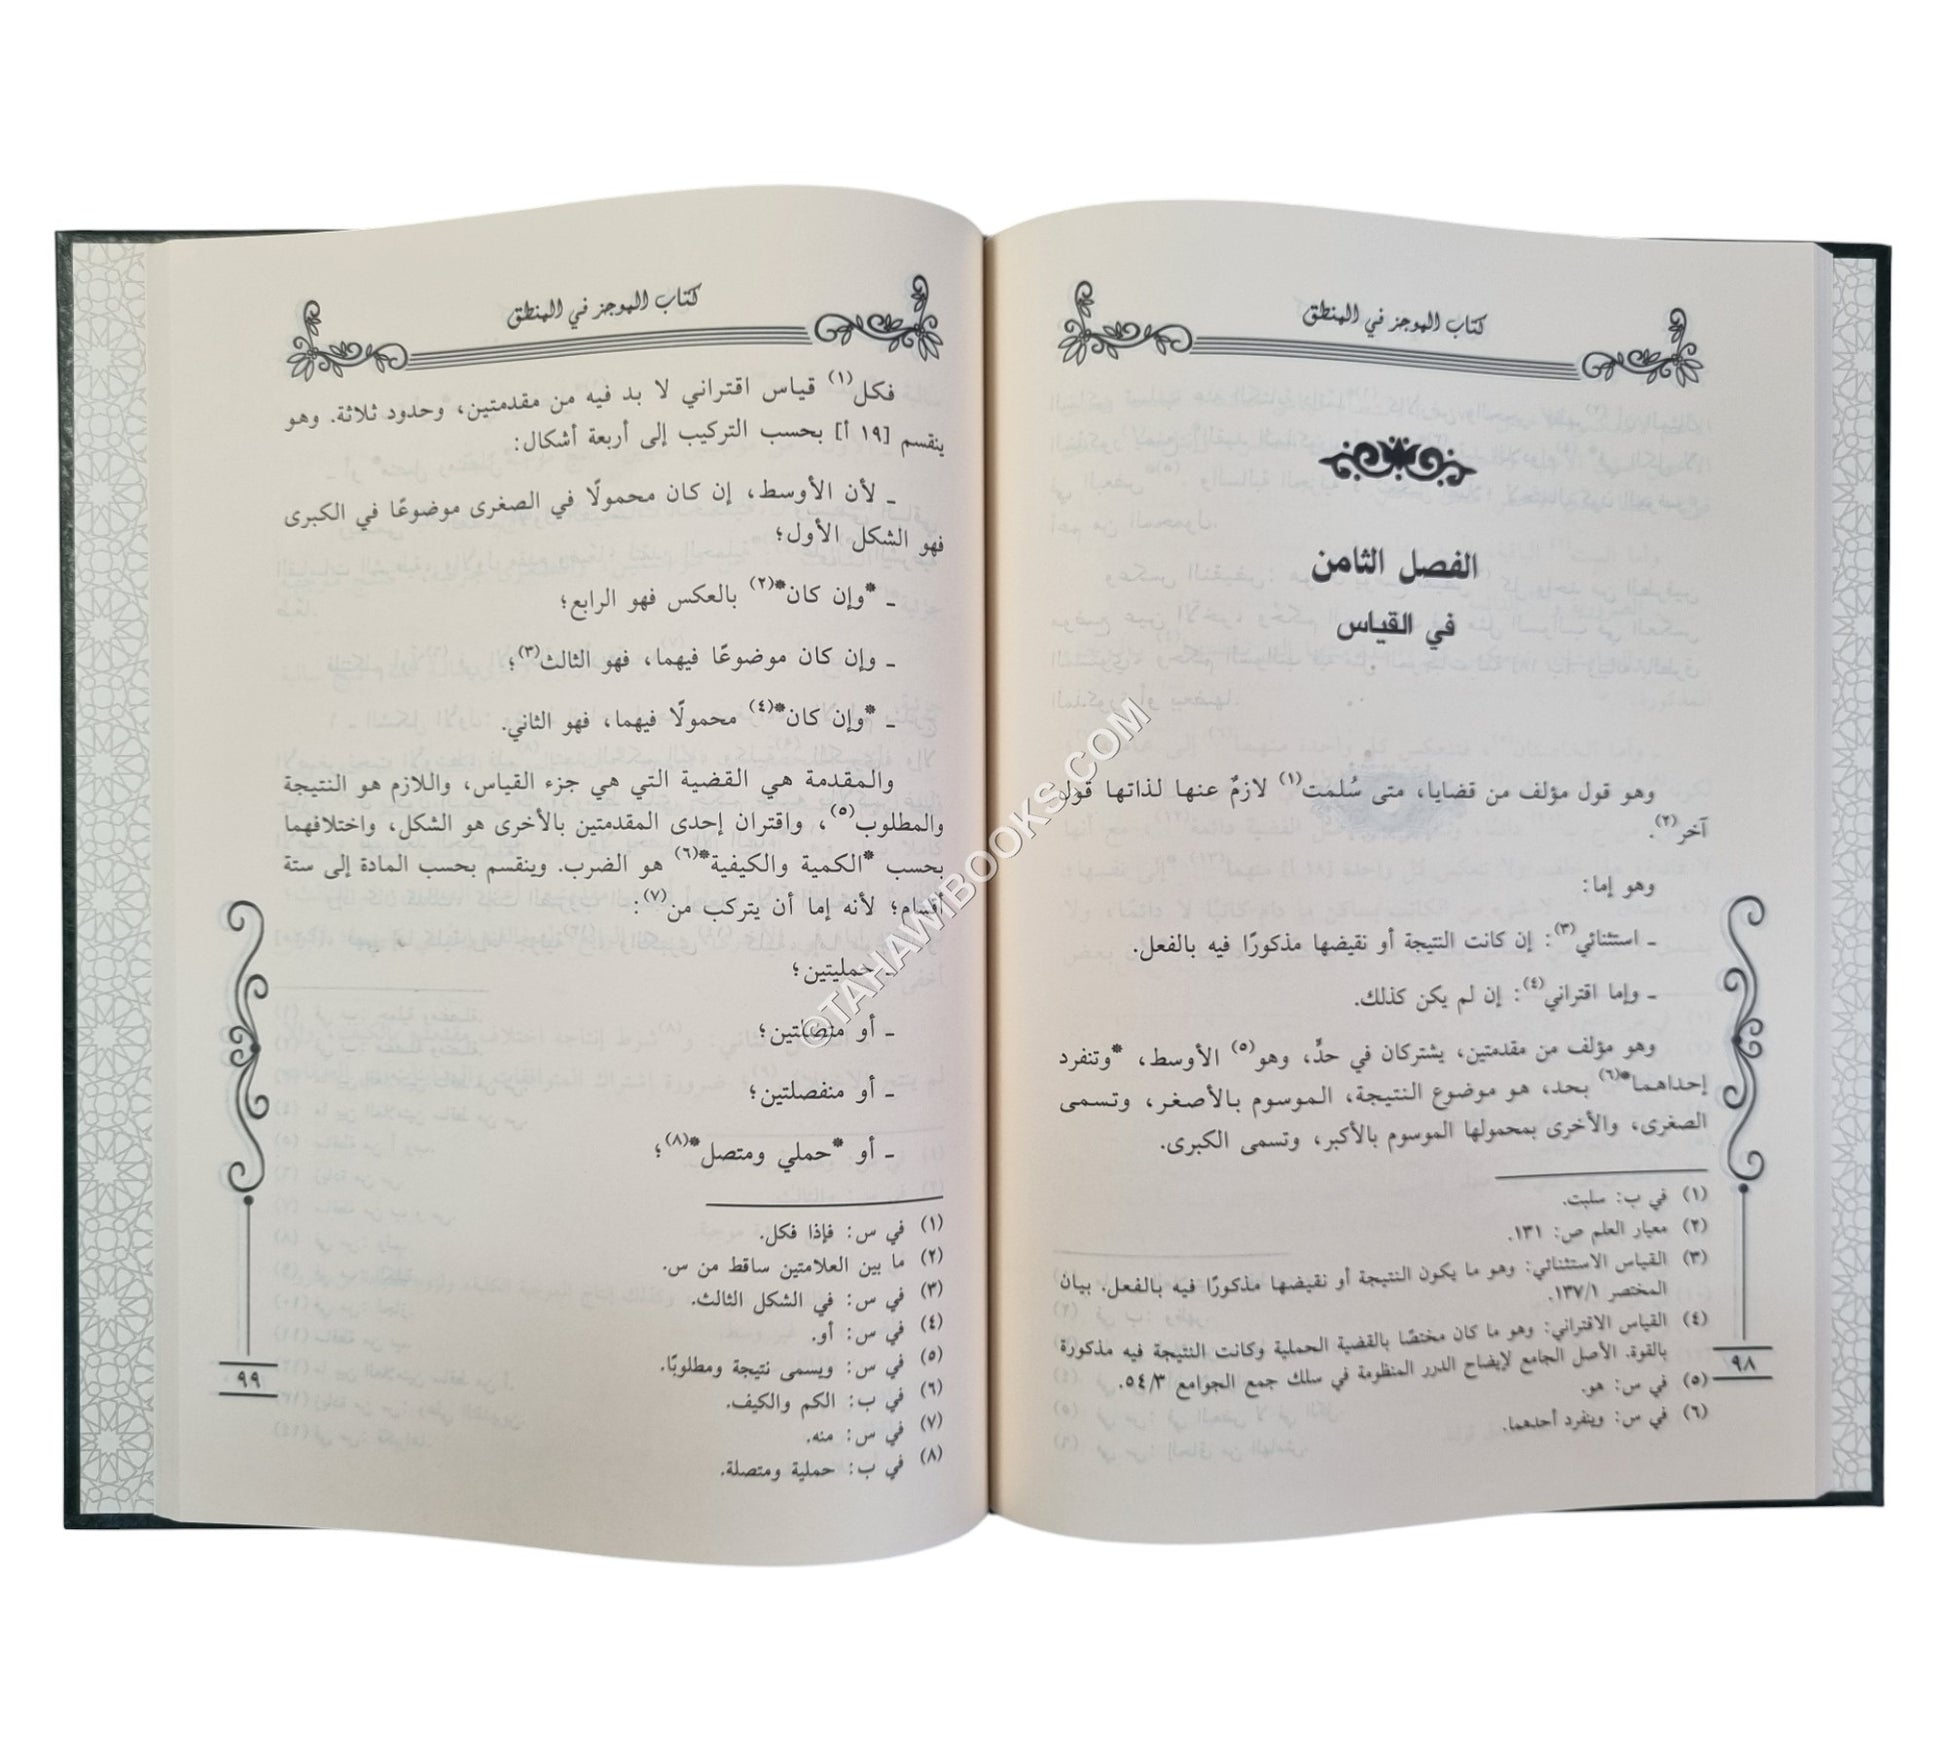 كتاب الموجز في المنطق
الفصل الثامن
في القياس
وهو قول مؤلف من قضايا، متى سُلمت(١) لازمٌ عنها لذاتها قول
آخر(٢).
وهو إما:
ـ استثنائي(٣): إن كانت النتيجة أو نقيضها مذكورًا فيه بالفعل.
ـ وإما اقتراني(٤): إن لم يكن كذلك.
وهو مؤلف من مقدمتين، يشتركان في حدٍّ، وهو(٥) الأوسط، *وتنفرد
إحداهما*(٦) بحد، هو موضوع النتيجة، الموسوم بالأصغر، وتسمى
الصغرى، والأخرى بمحمولها الموسوم بالأكبر، وتسمى الكبرى.
(١) في ب: سلبت.
(٢) معيار العلم ص: ١٣١.
(٣) القياس الاستثنائي: وهو ما يكون النتيجة أو نقيضها مذكورًا فيه بالفعل. بيان
المختصر ١٣٧/١.
(٤) القياس الاقتراني: وهو ما كان مختصًا بالقضية الحملية وكانت النتيجة فيه مذكورة
بالقوة. الأصل الجامع لإيضاح الدرر المنظومة في سلك جمع الجوامع ٥٤/٣.
(٥) في س: هو.
(٦) في س: وينفرد أحدهما.
٩٨
كتاب الموجز في المنطق
فكل(١) قياس اقتراني لا بد فيه من مقدمتين، وحدود ثلاثة. وهو
ينقسم [١٩ أ] بحسب التركيب إلى أربعة أشكال:
ـ لأن الأوسط، إن كان محمولًا في الصغرى موضوعًا في الكبرى
فهو الشكل الأول؛
ـ *وإن كان*(٢) بالعكس فهو الرابع؛
ـ وإن كان موضوعًا فيهما، فهو الثالث(٣)؛
ـ *وإن كان*(٤) محمولًا فيهما، فهو الثاني.
والمقدمة هي القضية التي هي جزء القياس، واللازم هو النتيجة
والمطلوب(٥)، واقتران إحدى المقدمتين بالأخرى هو الشكل، واختلافهما
بحسب *الكمية والكيفية*(٦) هو الضرب. وينقسم بحسب المادة إلى ستة
أقسام؛ لأنه إما أن يتركب من(٧):
ـ حمليتين؛
ـ أو متصلتين؛
ـ أو منفصلتين؛
ـ أو *حملي ومتصل*(٨)؛
(١) في س: فإذا فكل.
(٢) ما بين العلامتين ساقط من س.
(٣) في س: في الشكل الثالث.
(٤) في س: أو.
(٥) في س: ويسمى نتيجة ومطلوبًا.
(٦) في ب: الكم والكيف.
(٧) في س: منه.
(٨) في ب: حملية ومتصلة.
٩٩
©TAHAWIBOOKS.COM